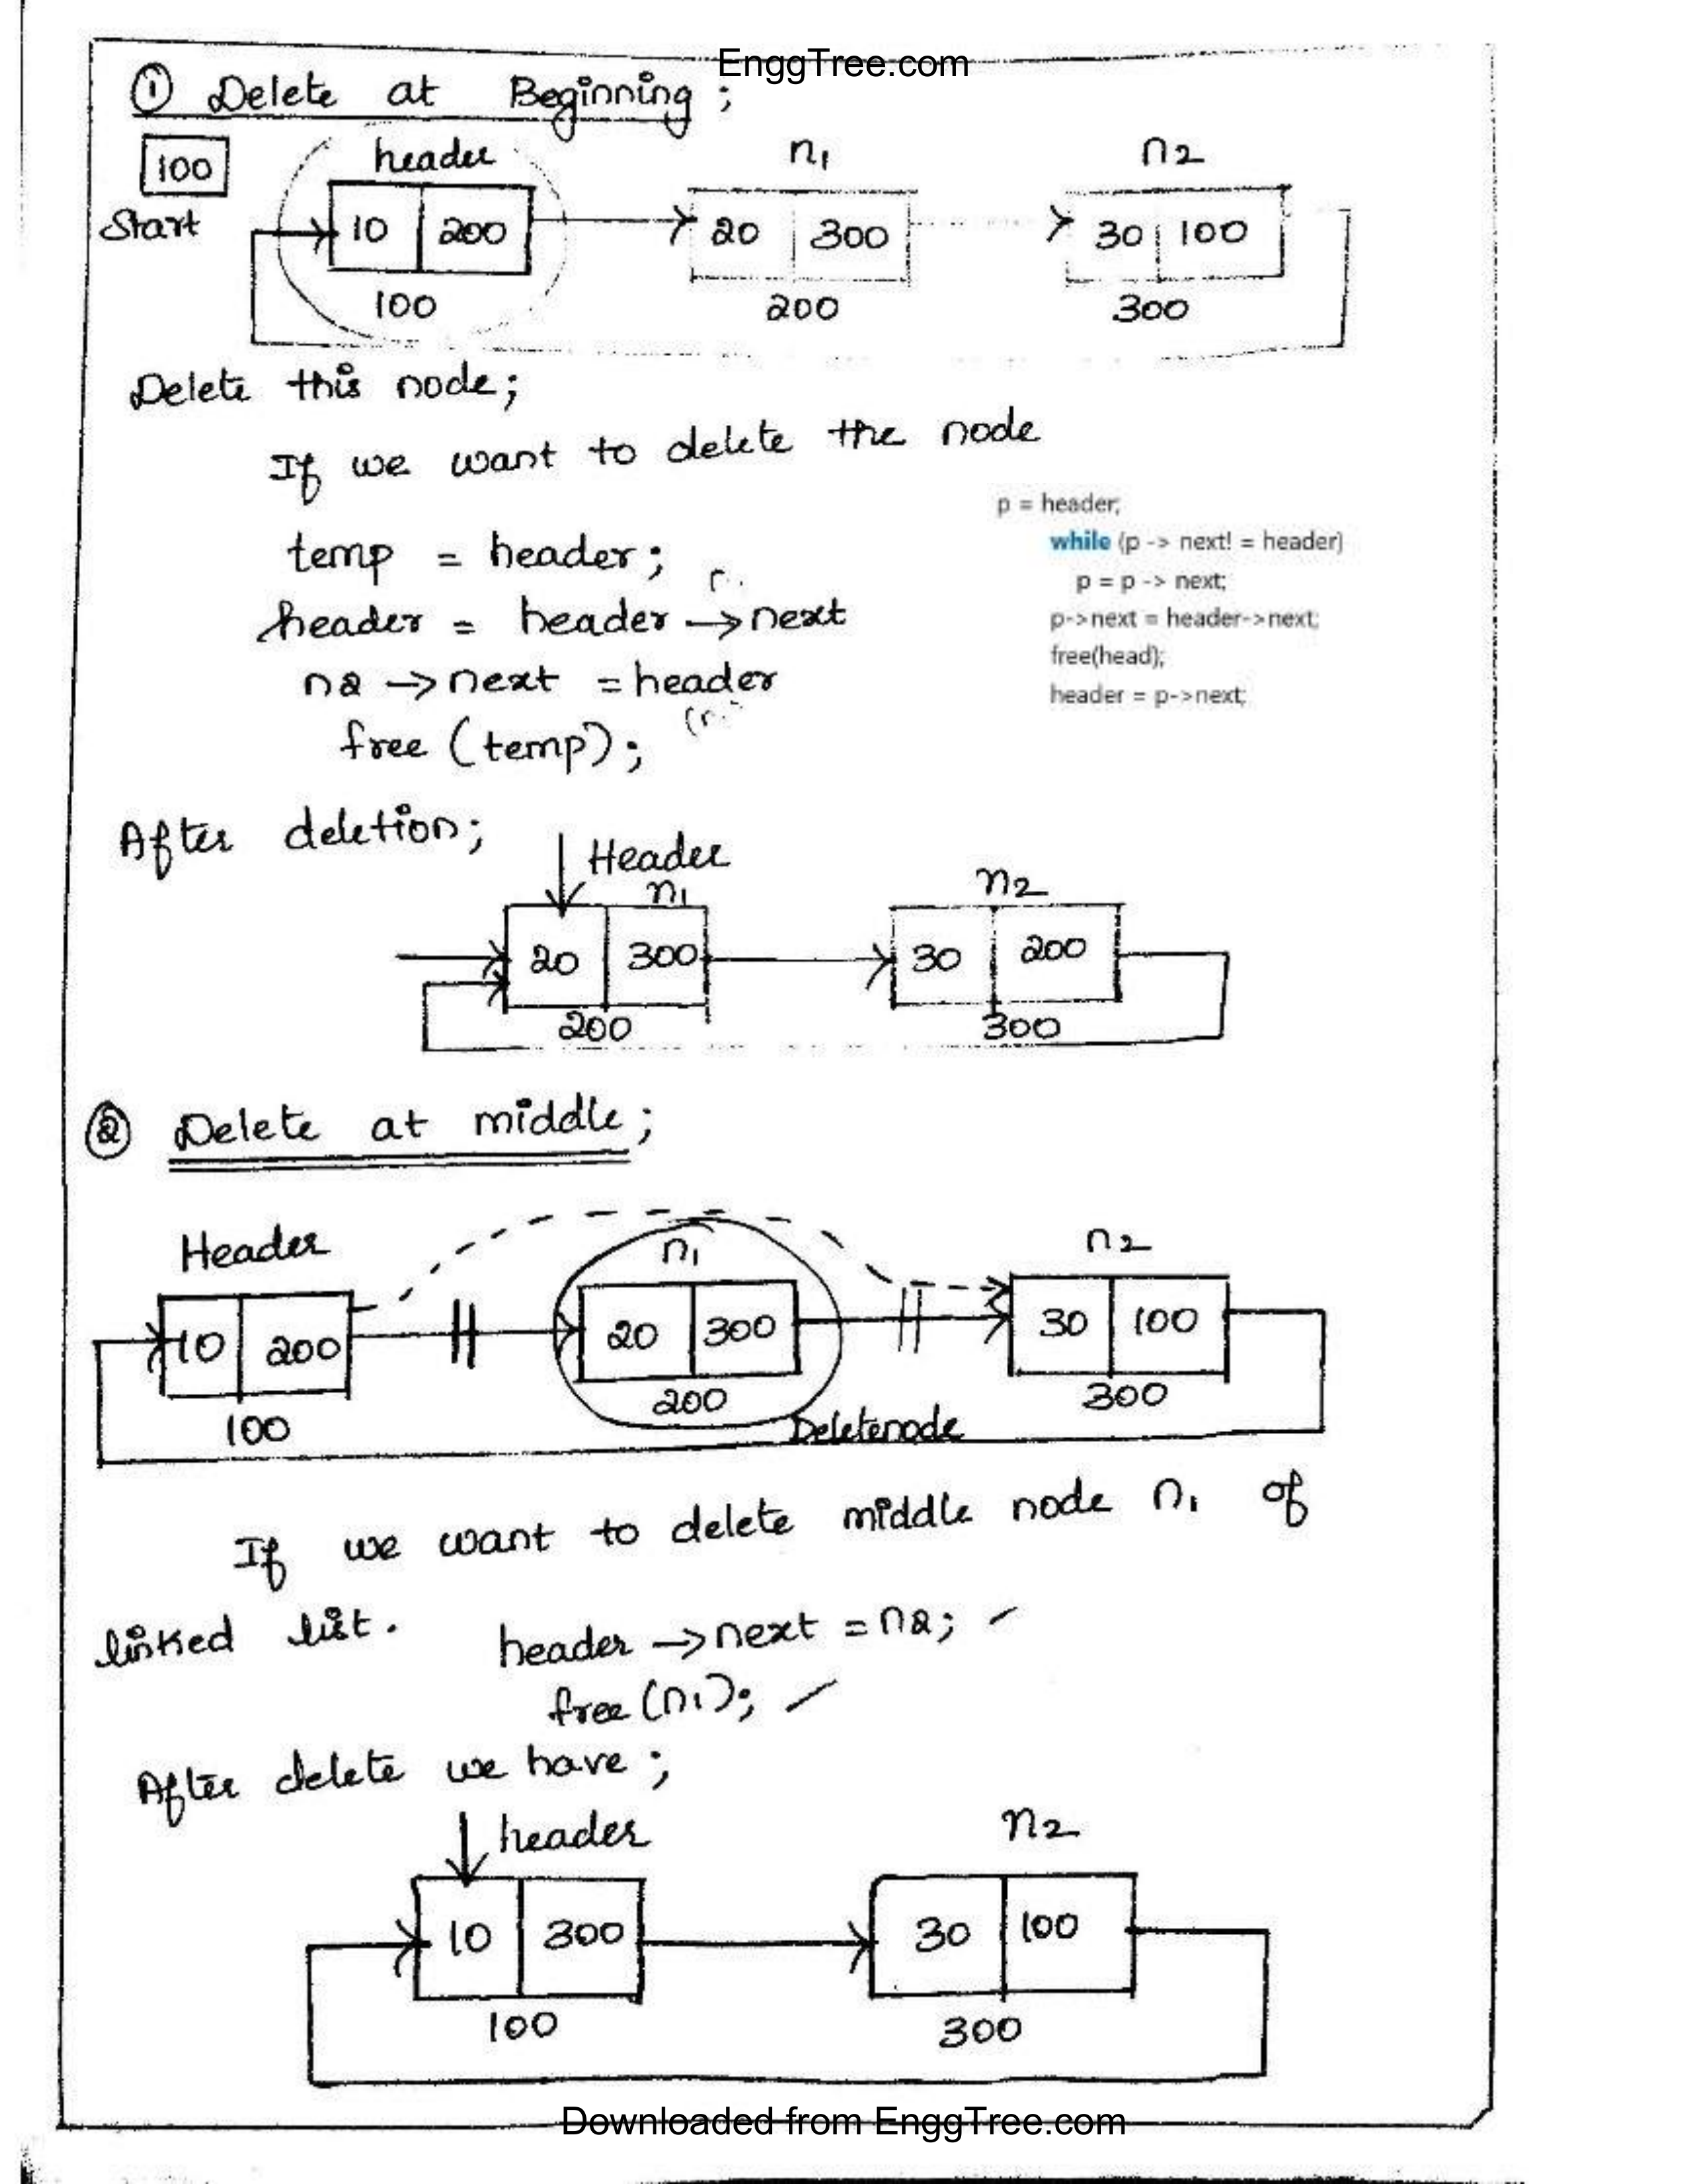 EnggTree.com
① Delete at Beginning ;
100
header n1 n2
Start
10 200 20 300 30 100
100 200 300
Delete this node;
If we want to delete the node
temp = header;
header = header → next
n2 → next = header
free (temp);
p = header;
while (p -> next! = header)
p = p -> next;
p->next = header->next;
free(head);
header = p->next;
After deletion;
Header
n1 n2
20 300 30 200
200 300
② Delete at middle ;
Header n1 n2
10 200 20 300 30 100
100 200 300
Deletenode
If we want to delete middle node n1 of
linked list. header → next = n2;
free (n1);
After delete we have ;
header n2
10 300 30 100
100 300
Downloaded from EnggTree.com